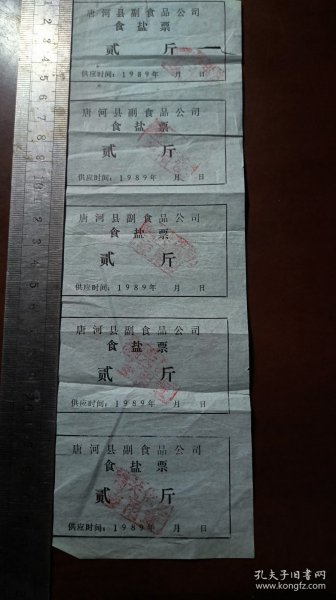 唐河县副食品公司
食盐票
贰 斤
供应时间：1989年 月 日
唐河县副食品公司
食盐票
贰 斤
供应时间：1989年 月 日
唐河县副食品公司
食盐票
贰 斤
供应时间：1989年 月 日
唐河县副食品公司
食盐票
贰 斤
供应时间：1989年 月 日
唐河县副食品公司
食盐票
贰 斤
供应时间：1989年 月 日
孔夫子旧书网